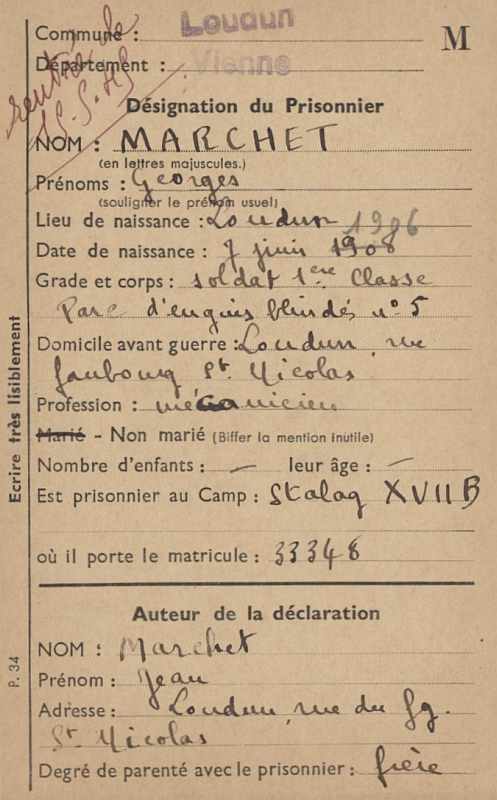 Commune : Loudun
M
Département : Vienne
rentré le
15.5.45
Désignation du Prisonnier
NOM : MARCHET
(en lettres majuscules.)
Prénoms : Georges
(souligner le prénom usuel)
Lieu de naissance : Loudun
1906
Date de naissance : 7 juin 1908
Grade et corps : soldat 1ère Classe
Parc d'engins blindés n° 5
Domicile avant guerre : Loudun, rue
faubourg St. Nicolas
Profession : mécanicien
Marié - Non marié (Biffer la mention inutile)
Nombre d'enfants : — leur âge : —
Est prisonnier au Camp : Stalag XVII B
où il porte le matricule : 33348
Auteur de la déclaration
NOM : Marchet
Prénom : Jean
Adresse : Loudun, rue du fg.
St Nicolas
Degré de parenté avec le prisonnier : frère
Ecrire très lisiblement
P. 34